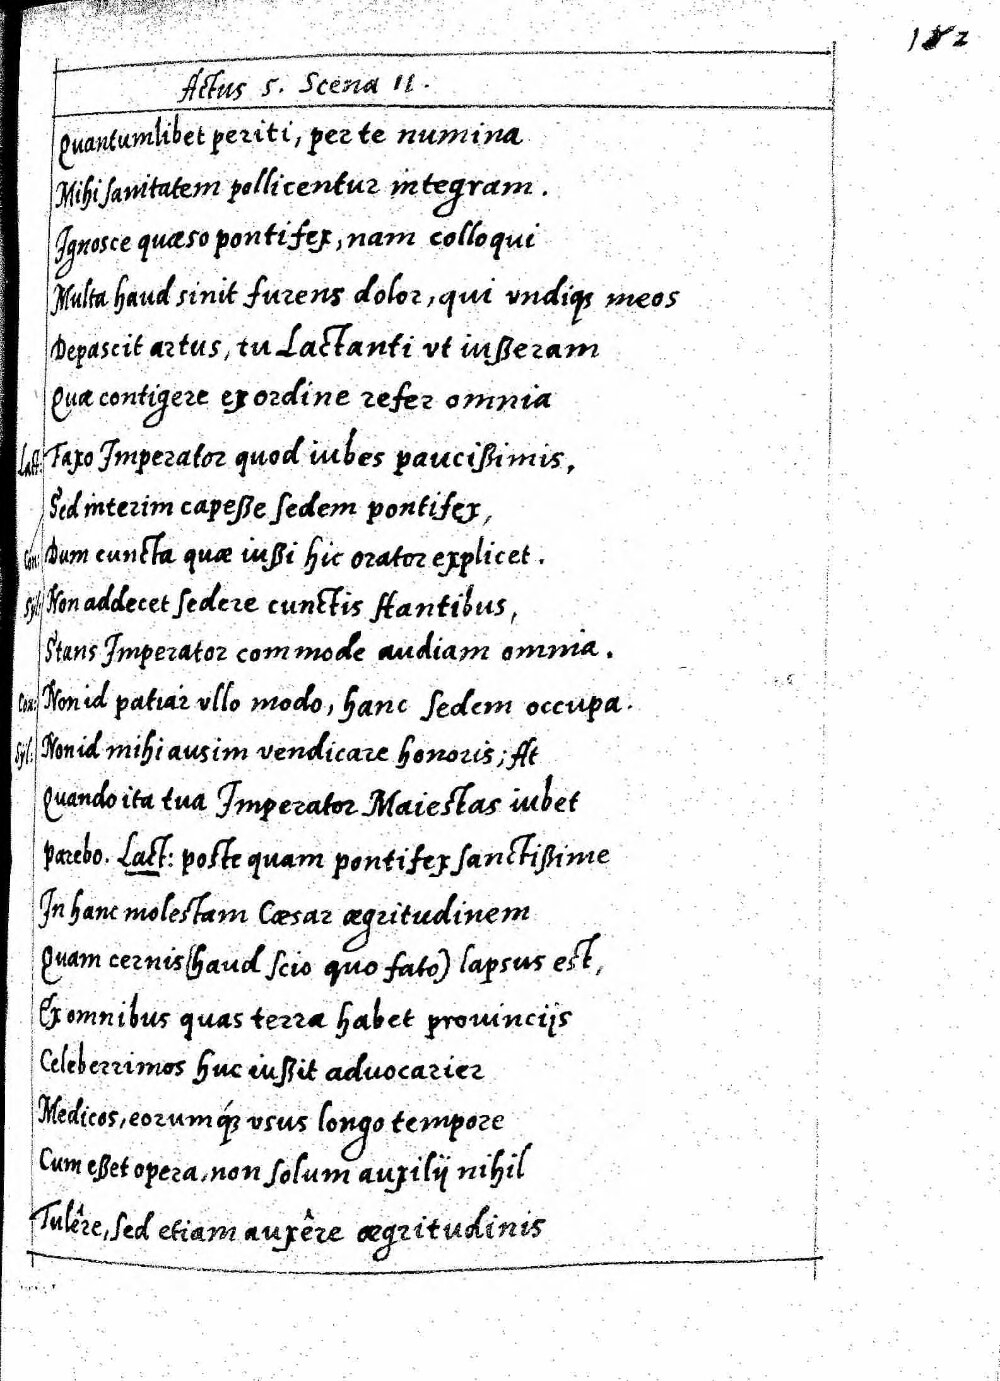 182
Actus 5. Scena II.
Quantumlibet periti, per te numina
Mihi sanitatem pollicentur integram.
Ignosce quæso pontifex, nam colloqui
Multa haud sinit furens dolor, qui vndiqꝫ meos
Depascit artus, tu Lactanti vt iußeram
Quæ contigere ex ordine refer omnia
Lact: Faxo Imperator quod iubes paucißimis,
Sed interim capeße sedem pontifex,
Con: Dum cuncta quæ iußi hic orator explicet.
Syl: Non addecet sedere cunctis stantibus,
Stans Imperator commode audiam omnia.
Con: Non id patiar vllo modo, hanc sedem occupa.
Syl: Non id mihi ausim vendicare honoris; At
Quando ita tua Imperator Maiestas iubet
parebo. Lact: poste quam pontifex sanctißime
In hanc molestam Cæsar ægritudinem
Quam cernis (haud scio quo fato) lapsus est,
Ex omnibus quas terra habet prouincijs
Celeberrimos huc iußit aduocarier
Medicos, eorumqꝫ́ vsus longo tempore
Cum eßet opera, non solum auxilij nihil
Tulêre, sed etiam auxêre ægritudinis